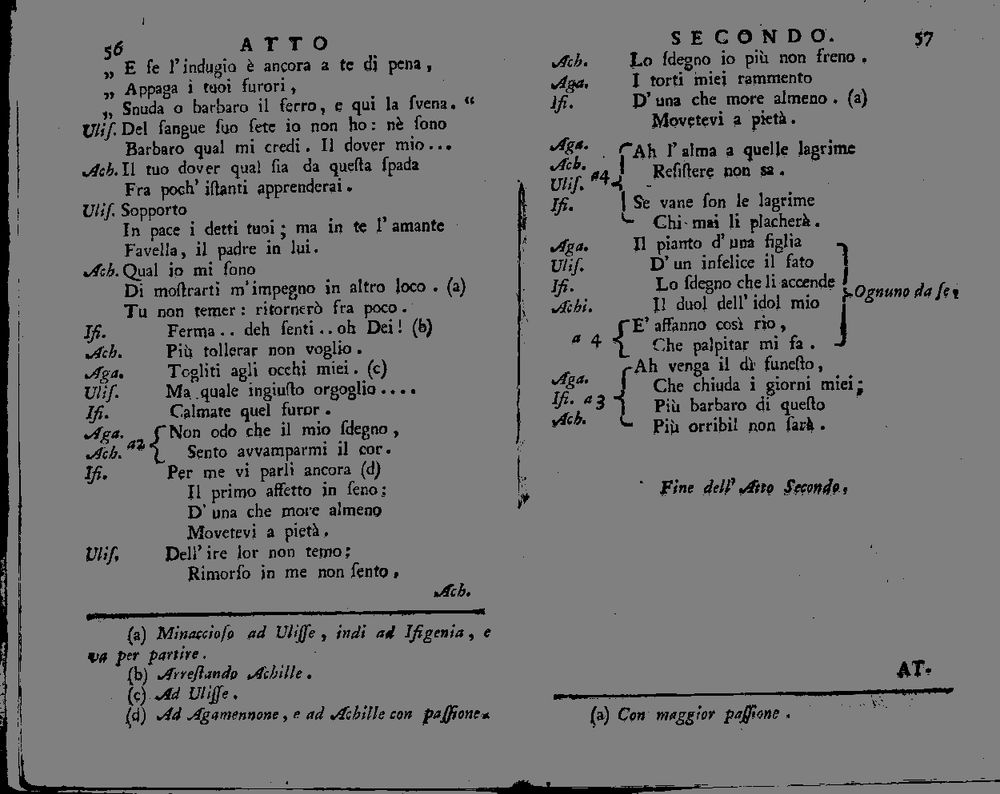 56 ATTO
„ E ſe l'indugio è ancora a te di pena,
„ Appaga i tuoi furori,
„ Snuda o barbaro il ferro, e qui la ſvena. “
Uliſ. Del ſangue ſuo ſete io non ho: nè ſono
Barbaro qual mi credi. Il dover mio...
Ach. Il tuo dover qual ſia da queſta ſpada
Fra poch' iſtanti apprenderai.
Uliſ. Sopporto
In pace i detti tuoi; ma in te l'amante
Favella, il padre in lui.
Ach. Qual io mi ſono
Di moſtrarti m'impegno in altro loco. (a)
Tu non temer: ritornerò fra poco.
Ifi. Ferma.. deh ſenti.. oh Dei! (b)
Ach. Più tollerar non voglio.
Aga. Togliti agli occhi miei. (c)
Uliſ. Ma quale ingiuſto orgoglio....
Ifi. Calmate quel furor.
Aga. Non odo che il mio ſdegno,
Ach. a2 Sento avvamparmi il cor.
Ifi. Per me vi parli ancora (d)
Il primo affetto in ſeno;
D'una che more almeno
Movetevi a pietà.
Uliſ. Dell'ire lor non temo;
Rimorſo in me non ſento,
Ach.
(a) Minaccioſo ad Uliſſe, indi ad Ifigenia, e
va per partire.
(b) Arreſtando Achille.
(c) Ad Uliſſe.
(d) Ad Agamennone, e ad Achille con paſſione.
SECONDO. 57
Ach. Lo ſdegno io più non freno.
Aga. I torti miei rammento
Ifi. D'una che more almeno. (a)
Movetevi a pietà.
Aga. Ah l'alma a quelle lagrime
Ach. Reſiſtere non sa.
Uliſ. a4
Ifi. Se vane ſon le lagrime
Chi mai li placherà.
Aga. Il pianto d'una figlia
Uliſ. D'un infelice il fato
Ifi. Lo ſdegno che li accende
Ognuno da ſe.
Achi. Il duol dell'idol mio
E' affanno così rio,
a 4 Che palpitar mi fa.
Ah venga il dì funeſto,
Aga. Che chiuda i giorni miei;
Ifi. a3 Più barbaro di queſto
Ach. Più orribil non ſarà.
Fine dell' Atto Secondo.
AT-
(a) Con maggior paſſione.